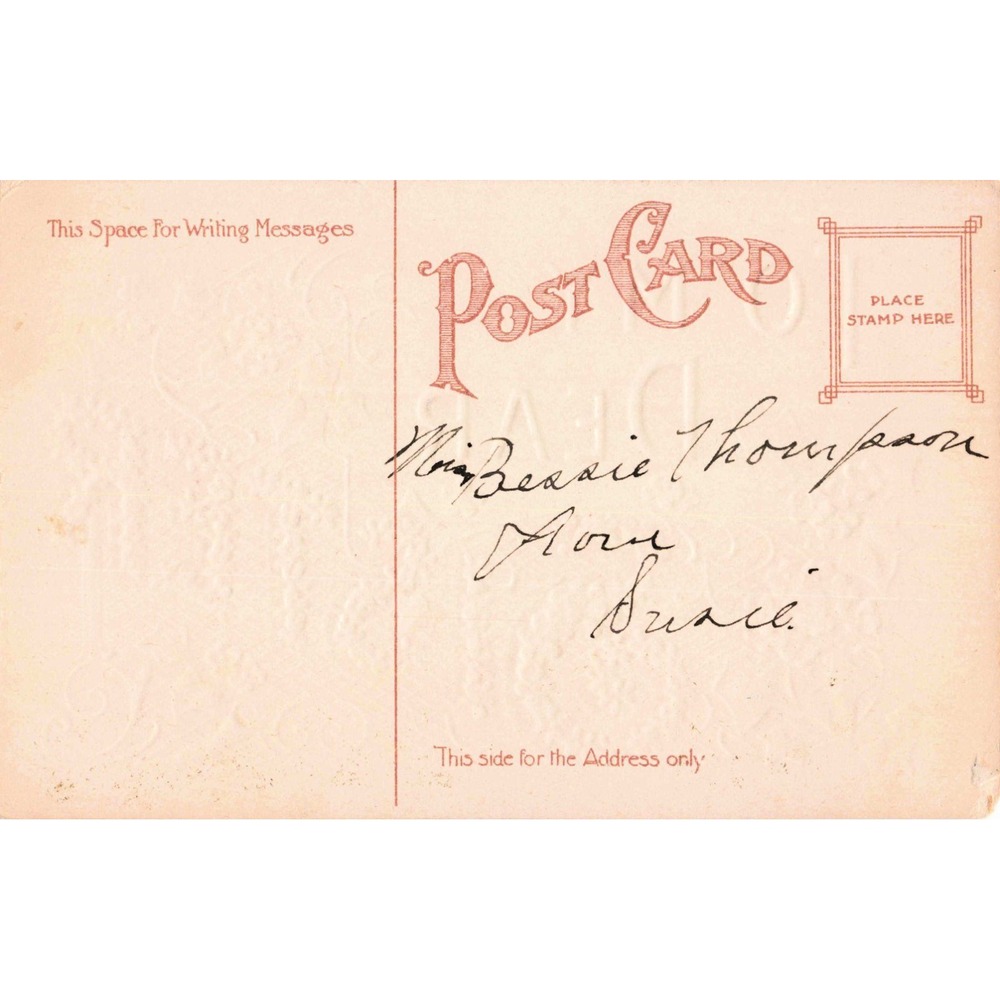 This Space For Writing Messages
POST CARD
PLACE
STAMP HERE
Miss Bessie Thompson
From
Susie.
This side for the Address only